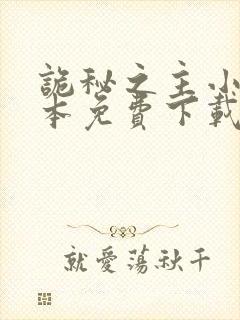 詭秘之主小
本免費下載
就愛蕩秋千